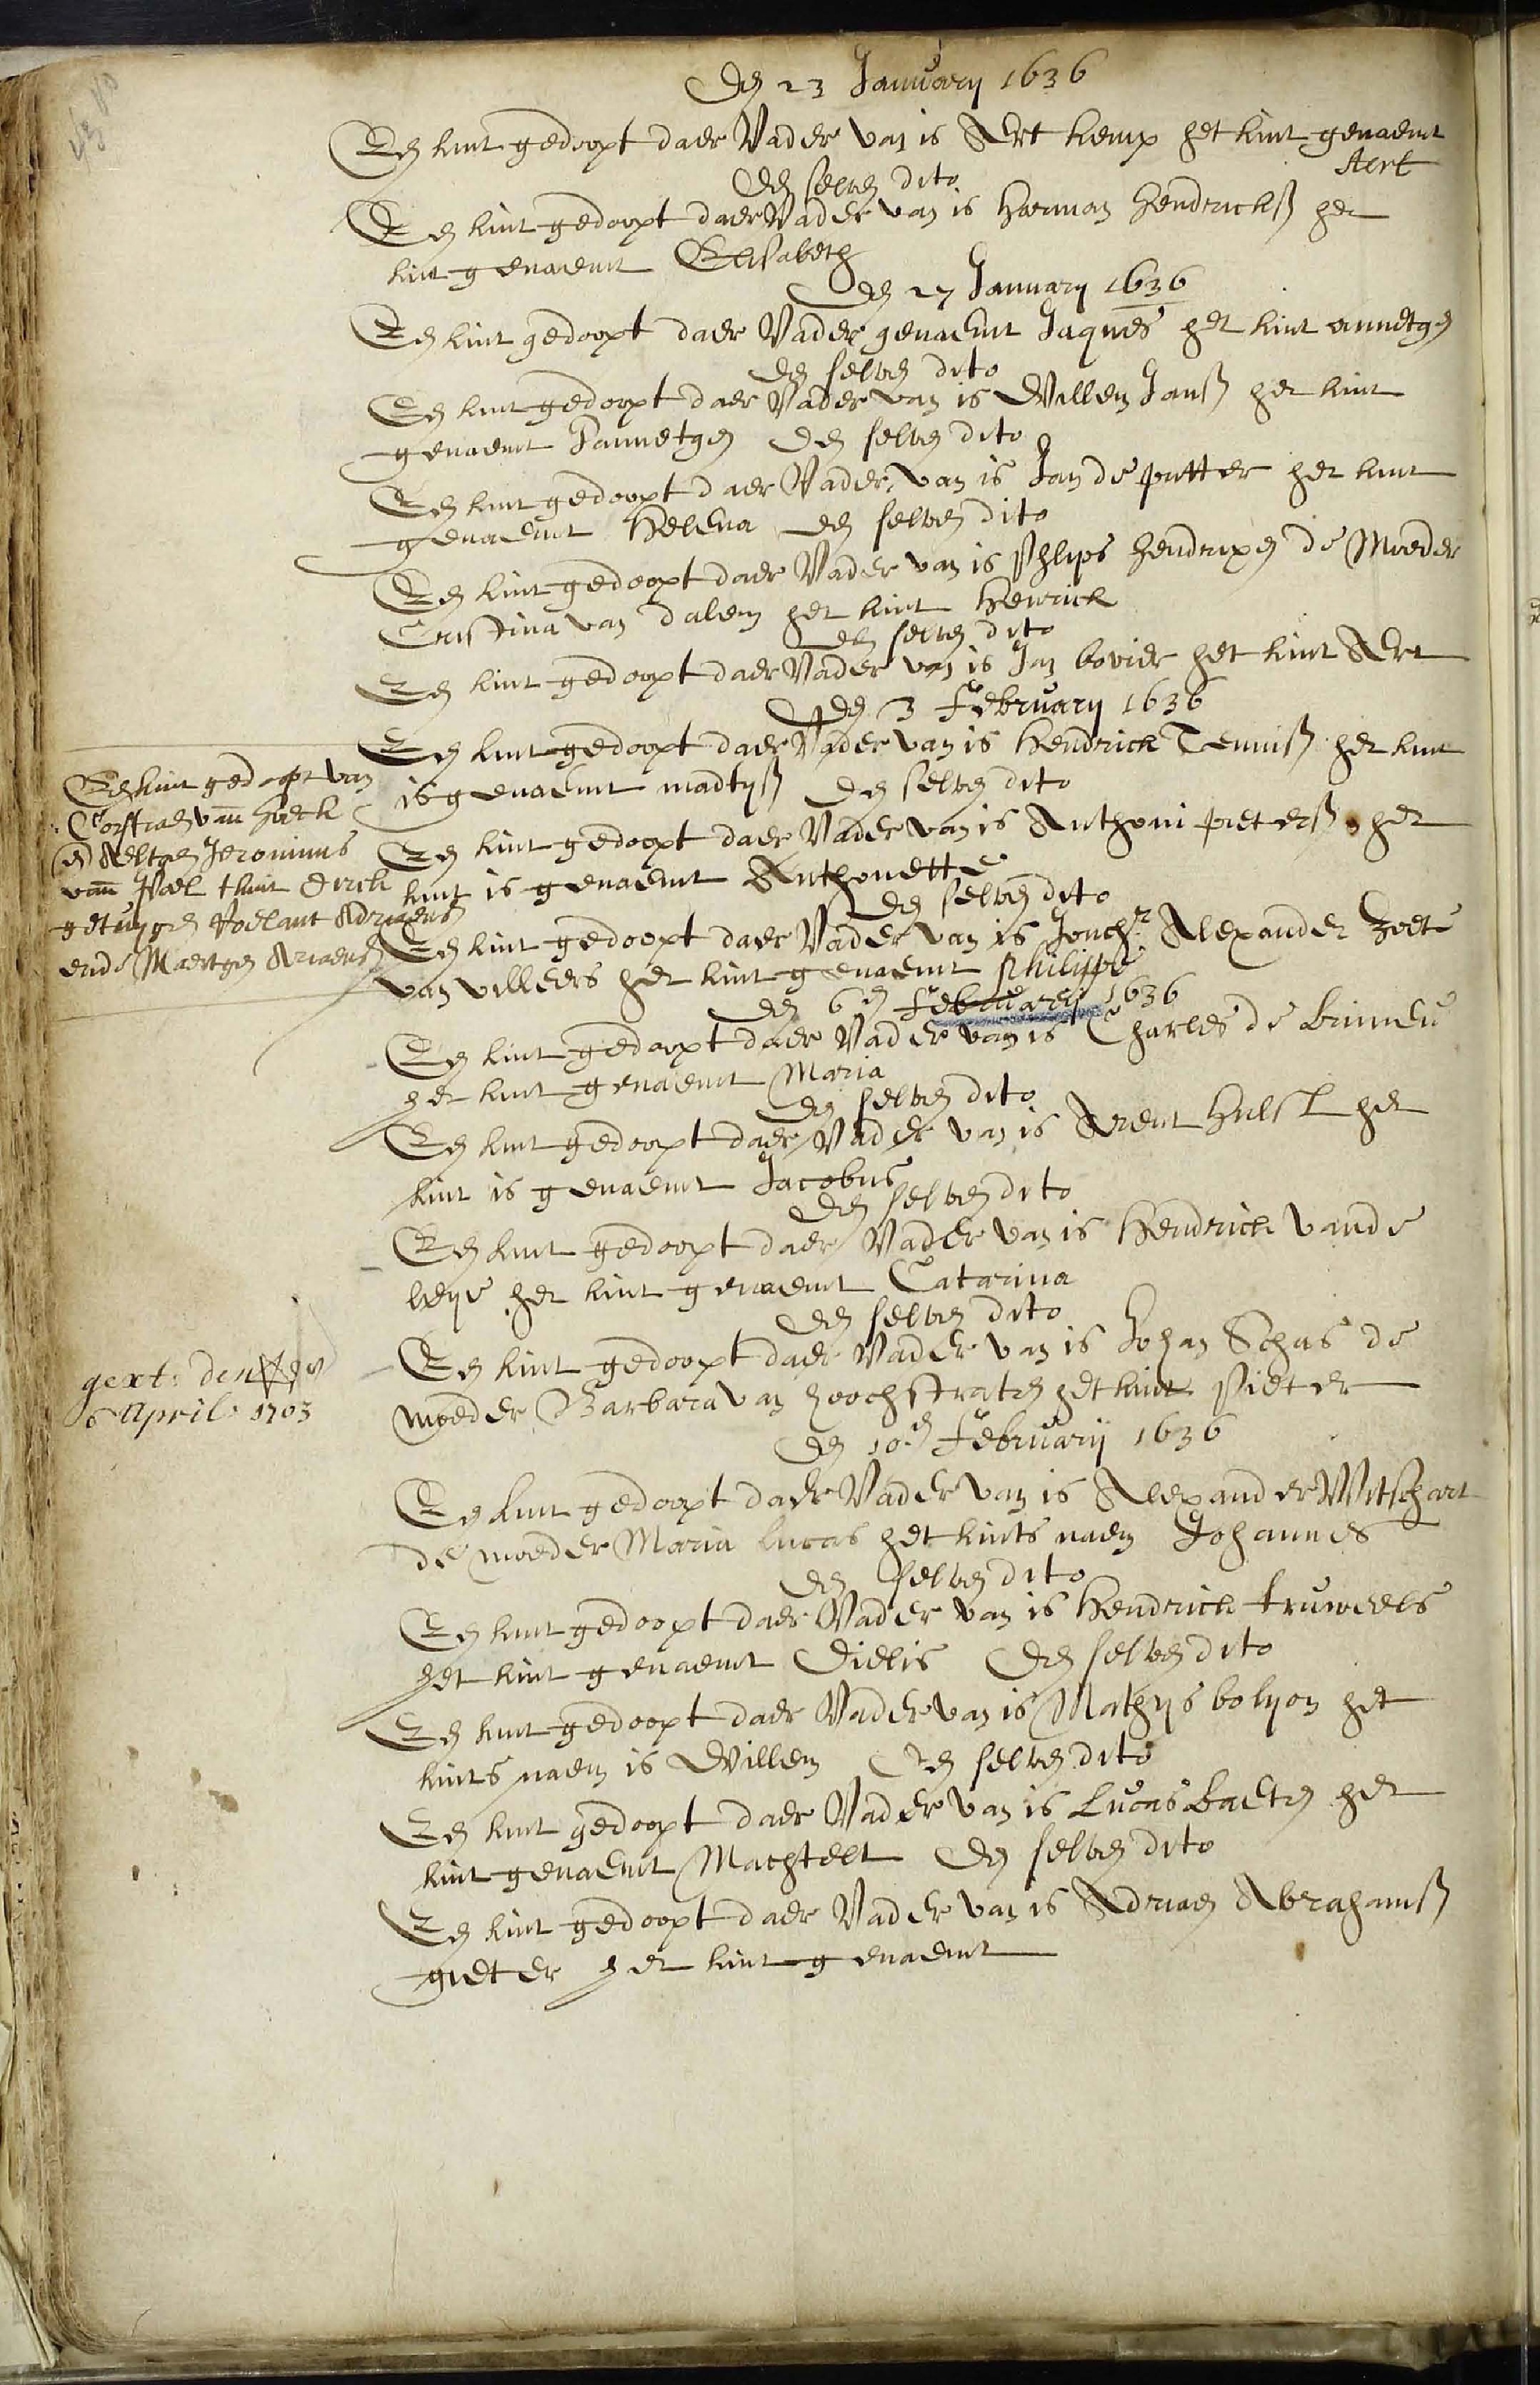 Den 23 January 1636
Een kint gedoopt daer Vader van is Aert kemp het kint genaemt
Aert
Den selven dito
Een kint gedoopt daer Vader van is Harman Hendricksß het
kint genaemt Elisabeth
Den 27 January 1636
Een kint gedoopt daer Vader genaemt Jaques het kint annetgen
Den selven dito
Een kint gedoopt daer Vader van is Willem Janß het kint
genaemt Jannetgen Den selven dito
Een kint gedoopt daer Vader van is Jan de putter het kint
genaemt Helena den selven dito
Een kint gedoopt daer Vader van is Phlips hendrixen de Moeder
Cristina van dalem het kint Henrick
den selven dito
Een kint gedoopt daer Vader van is Jan bovier het kint Aert
Den 3 February 1636
Een kint gedoopt daer Vader van is Hendrick Teunisß het kint
is genaemt madtysß den selven dito
Een kint gedoopt daer Vader van is Anthoni pietersß het
kint is genaemt Anthonette
Den selven dito
Een kint gedoopt daer Vader van is Jonchr Alexander Zoete
van villeers het kint genaemt Philippe
Een kint gedoopt van
Corstiaen van
en Aeltgen Jeronimus
van Pael tkint Dirck
getuygen Roelant Adriaens
ende Maertgen Ariaens
den 6en February 1636
Een kint gedoopt daer Vader van is Charles de
het kint genaemt Maria
Den selven dito
Een kint gedoopt daer Vader van is Arent Hulst het
kint is genaemt Jacobus
Den selven dito
Een kint gedoopt daer Vader van is Hendrick vande
leye het kint genaemt Catarina
den selven dito
Een kint gedoopt daer Vader van is Johan Schas de
moeder Barbara van hoochstraten het kint Pieter
gext: den
6 April 1703
den 10en February 1636
Een kint gedoopt daer Vader van is Alexander Witschart
de moeder Maria lucas het kints naem Johannes
den selven dito
Een kint gedoopt daer Vader van is Hendrick truweels
het kint genaemt Dielis Den selven dito
Een kint gedoopt daer Vader van is Mathys bolyon het
kints naem is Willem Den selven dito
Een kint gedoopt daer Vader van is Lucas Baeten het
kint genaemt Machtelt Den selven dito
Een kint gedoopt daer Vader van is Adriaen Abrahamsß
gieter het kint genaemt